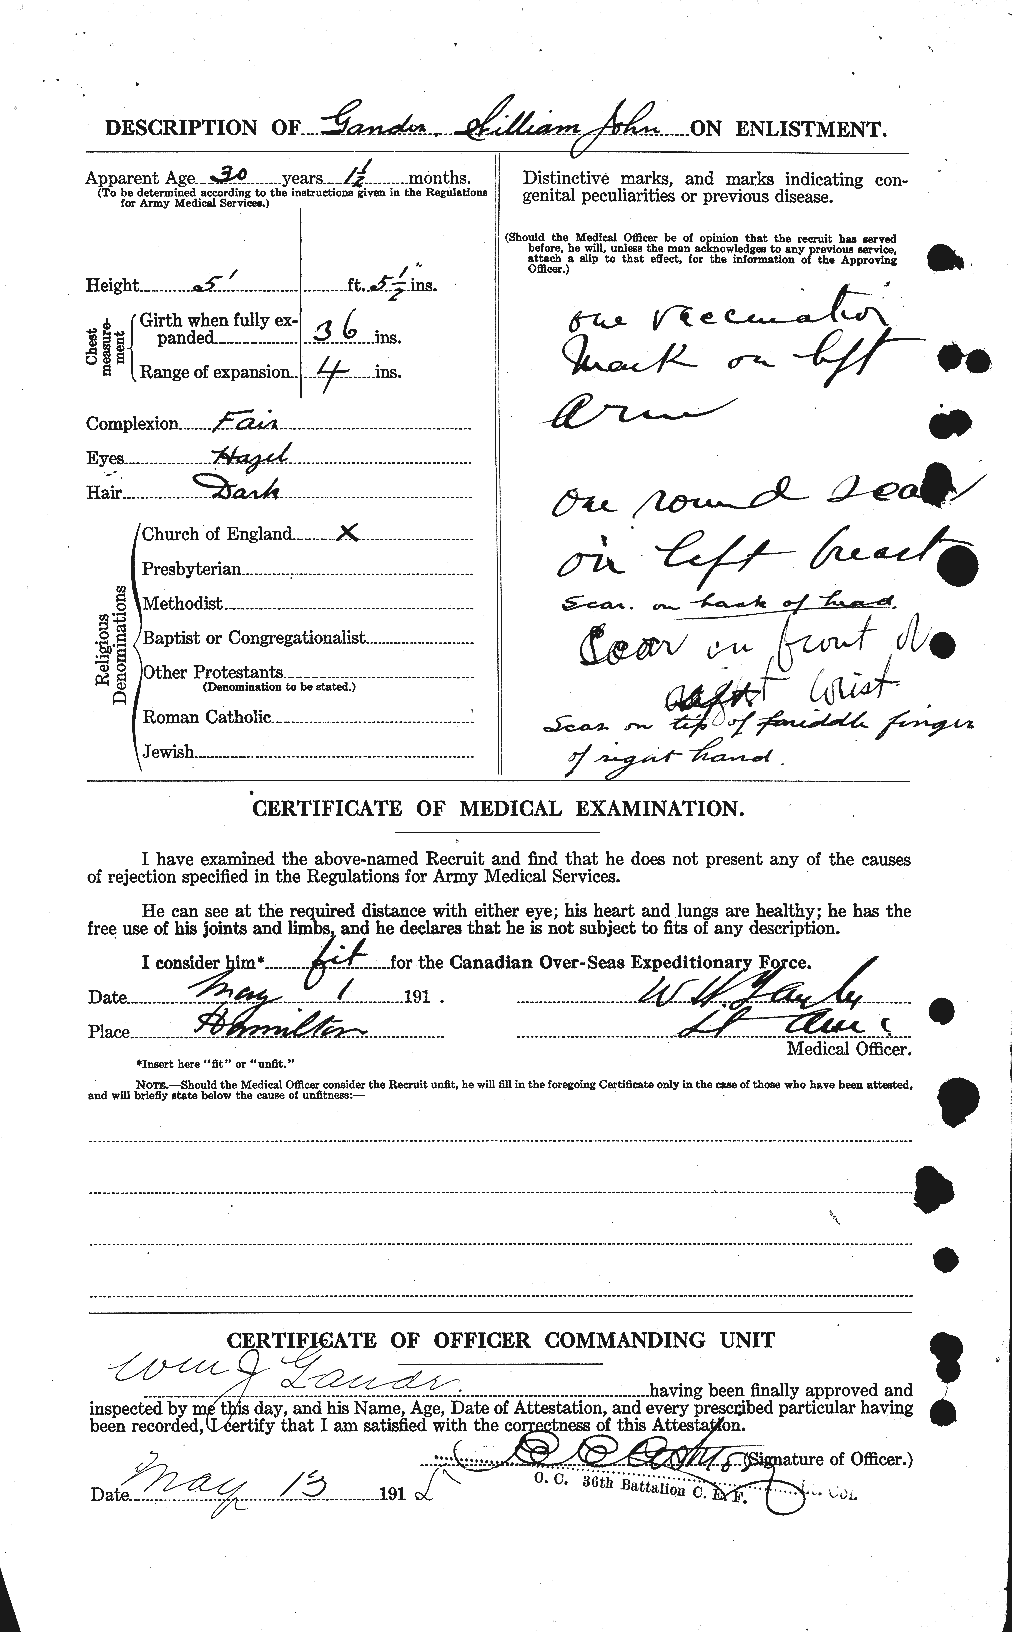 DESCRIPTION OF Gander, William John ON ENLISTMENT.
Apparent Age 30 years 1½ months.
(To be determined according to the instructions given in the Regulations
for Army Medical Services.)
Height 5' ft. 5½" ins.
Chest measurement
Girth when fully expanded 36 ins.
Range of expansion 4 ins.
Complexion Fair
Eyes Hazel
Hair Dark
Religious Denominations
Church of England X
Presbyterian
Methodist
Baptist or Congregationalist
Other Protestants
(Denomination to be stated.)
Roman Catholic
Jewish
Distinctive marks, and marks indicating con-
genital peculiarities or previous disease.
(Should the Medical Officer be of opinion that the recruit has served
before, he will, unless the man acknowledges to any previous service,
attach a slip to that effect, for the information of the Approving
Officer.)
one vaccination
Mark on left
Arm
One round scar
on left breast
Scar. on back of head.
Scar on front of
wrist
Scar on tip of middle finger
of right hand.
CERTIFICATE OF MEDICAL EXAMINATION.
I have examined the above-named Recruit and find that he does not present any of the causes
of rejection specified in the Regulations for Army Medical Services.
He can see at the required distance with either eye; his heart and lungs are healthy; he has the
free use of his joints and limbs, and he declares that he is not subject to fits of any description.
I consider him* fit for the Canadian Over-Seas Expeditionary Force.
Date May 1 191 .
Place Hamilton
W H
Lt
Medical Officer.
*Insert here "fit" or "unfit."
NOTE.—Should the Medical Officer consider the Recruit unfit, he will fill in the foregoing Certificate only in the case of those who have been attested,
and will briefly state below the cause of unfitness:—
CERTIFICATE OF OFFICER COMMANDING UNIT
Wm J Gander. having been finally approved and
inspected by me this day, and his Name, Age, Date of Attestation, and every prescribed particular having
been recorded, I certify that I am satisfied with the correctness of this Attestation.
(Signature of Officer.)
O. C. 36th Battalion C. E. F.
Date May 13 1915